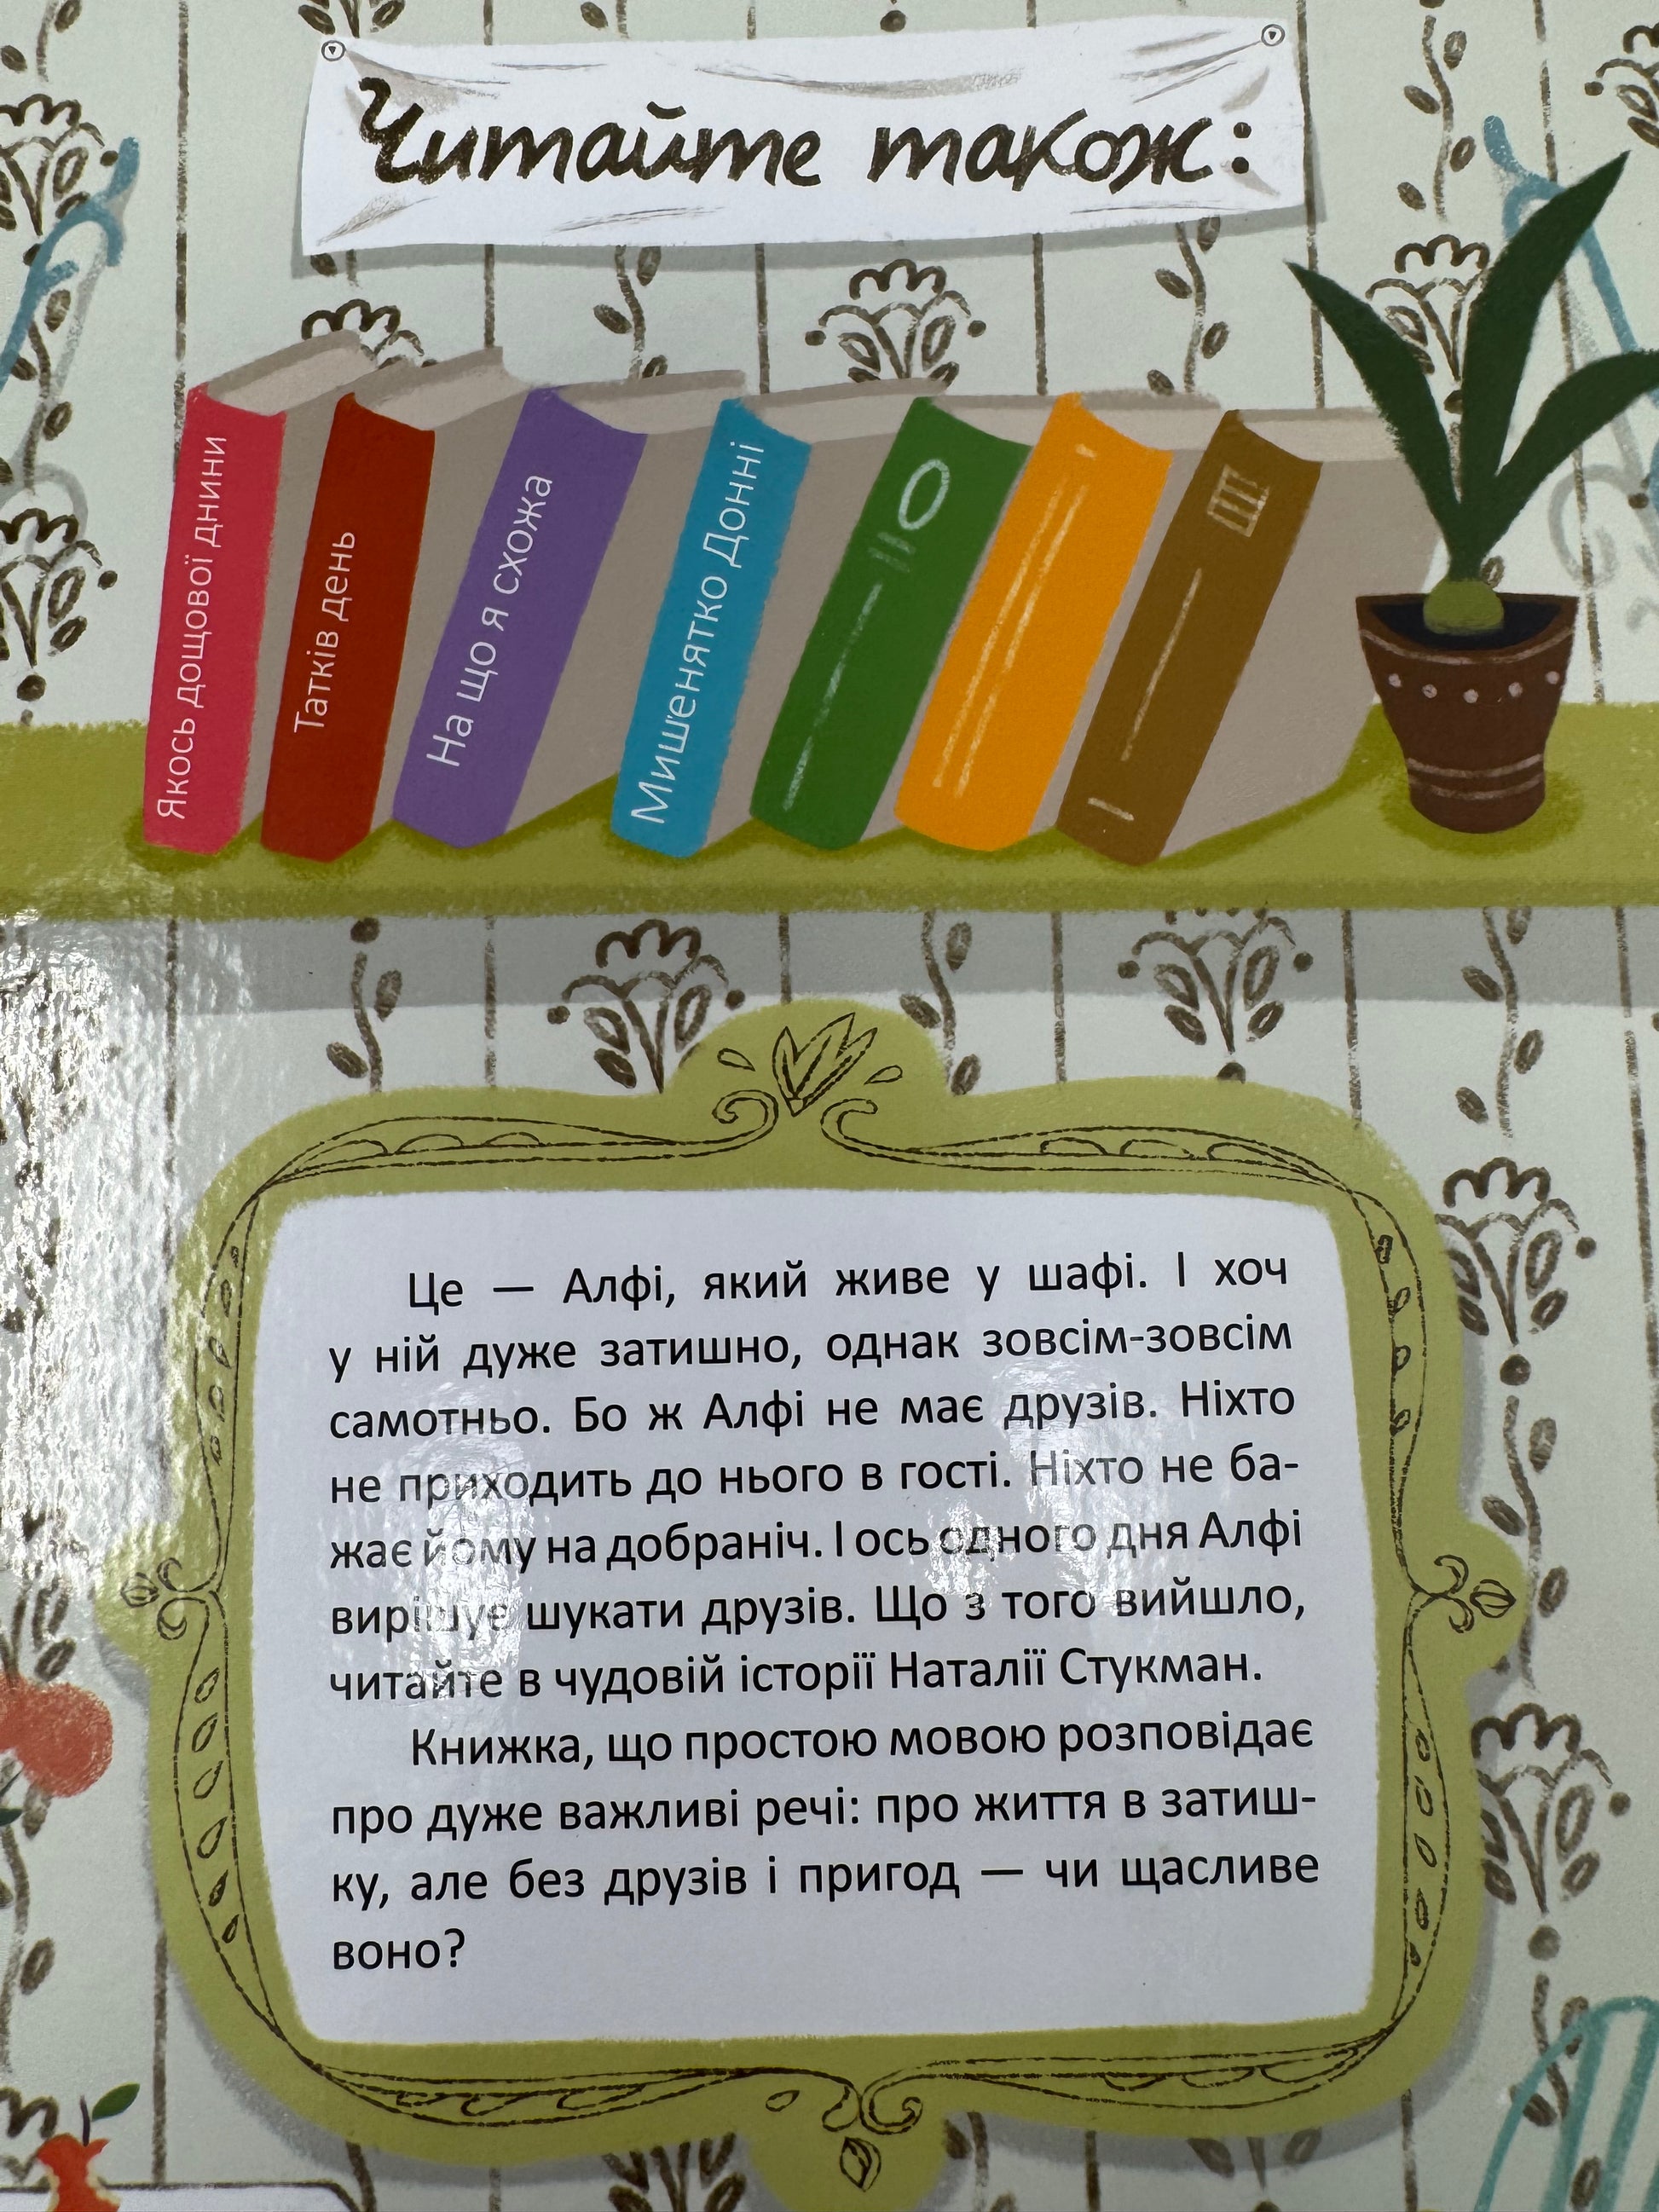 Читайте також:
Якось дощової днини
Татків день
На що я схожа
Мишенятко Донні
Це — Алфі, який живе у шафі. І хоч
у ній дуже затишно, однак зовсім-зовсім
самотньо. Бо ж Алфі не має друзів. Ніхто
не приходить до нього в гості. Ніхто не ба-
жає йому на добраніч. І ось одного дня Алфі
вирішує шукати друзів. Що з того вийшло,
читайте в чудовій історії Наталії Стукман.
Книжка, що простою мовою розповідає
про дуже важливі речі: про життя в затиш-
ку, але без друзів і пригод — чи щасливе
воно?